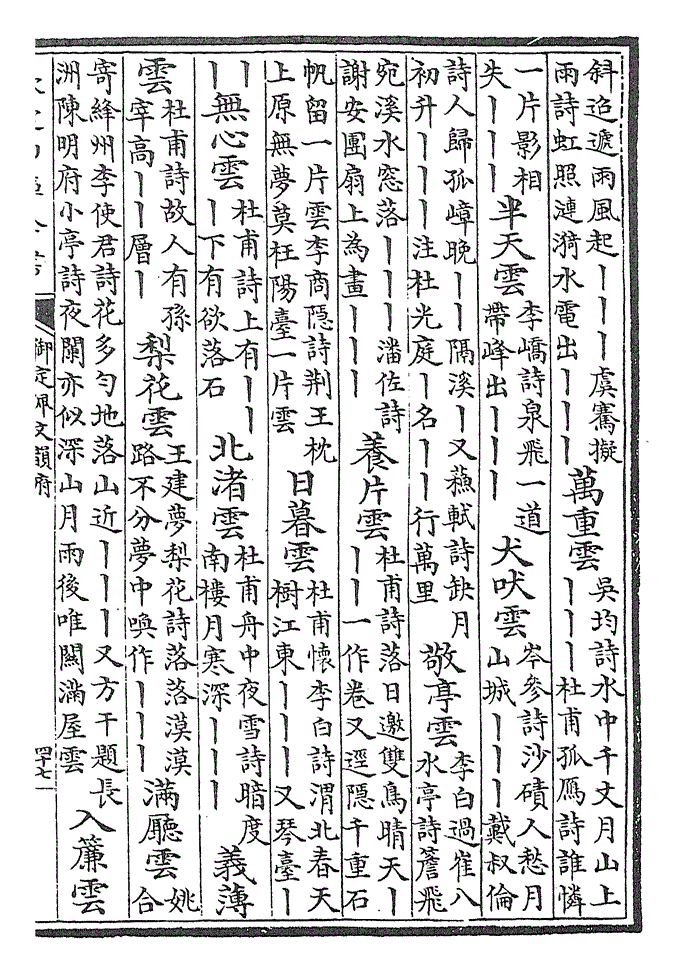 斜迨遞雨風起｜｜｜虞騫擬
雨詩虹照漣漪水電出｜｜｜
萬重雲
吳均詩水中千丈月山上
｜｜｜杜甫孤鴈詩誰憐
一片影相
失｜｜｜
半天雲
李嶠詩泉飛一道
帶峰出｜｜｜
犬吠雲
岑參詩沙磧人愁月
山城｜｜｜戴叔倫
詩人歸孤嶂晚｜｜隔溪｜又蘓軾詩缺月
初升｜｜｜注杜光庭｜名｜｜行萬里
敬亭雲
李白過崔八
水亭詩簷飛
宛溪水窓落｜｜｜潘佐詩
謝安團扇上為畫｜｜｜
養片雲
杜甫詩落日邀雙鳥晴天｜
｜｜一作卷又逕隱千重石
帆留一片雲李商隐詩荆王枕
上原無夢莫枉陽臺一片雲
日暮雲
杜甫懷李白詩渭北春天
樹江東｜｜｜又琴臺｜
｜
｜
無心雲
杜甫詩上有｜｜
｜下有欲落石
北渚雲
杜甫舟中夜雪詩暗度
南樓月寒深｜｜｜
義薄
雲
杜甫詩故人有孫
宰高｜｜層｜
梨花雲
王建夢梨花詩落落漠漠
路不分夢中喚作｜｜｜
滿廳雲
姚
合
寄絳州李使君詩花多勻地落山近｜｜｜又方干題長
洲陳明府小亭詩夜闌亦似深山月雨後唯關滿屋雲
入簾雲
御定佩文韻府
四十七